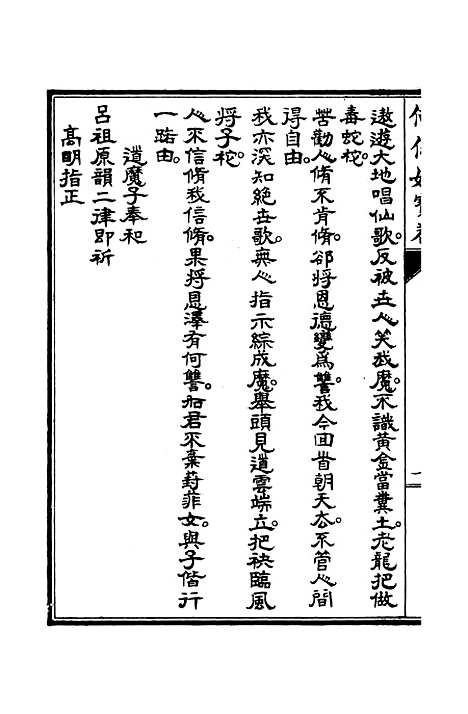 遨遊大地唱仙歌。反被世人笑我魔。不識黃金當糞土。老龍把做
毒蛇柁。
苦勸人脩不肯脩。卻將恩德變爲讐。我今回首朝天去。不管人間
得自由。
我亦深知絕世歌。無人指示綜成魔。舉頭見道雲端立。把袂臨風
將子柁。
人不信脩我信脩。果將恩澤有何讐。君不棄葑菲女。與子偕行
一路由。
道魔子奉和
呂祖原韻二律即祈
高明指正